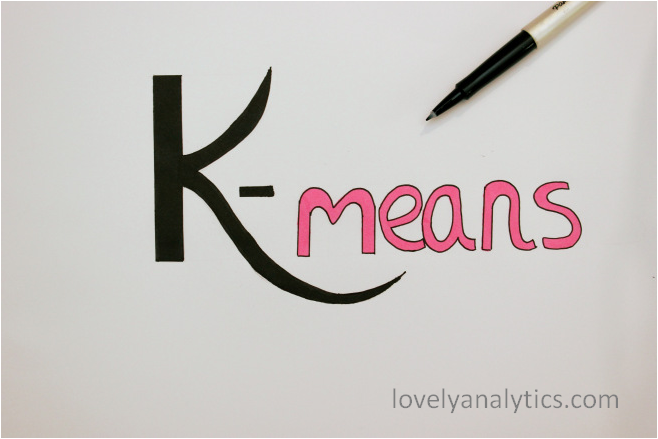 K-means
lovelyanalytics.com